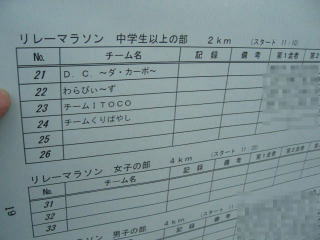 リレーマラソン 中学生以上の部 2km (スタート 11:10)
No. チーム名 記録 備考 第1走者 第2
21 D.C.~ダ・カーポ~
22 わらびぃ~ず
23 チームITOCO
24 チームくりばやし
25
26
リレーマラソン 女子の部 4km (スタート
No. チーム名 記録 備考 第1走者
31
32
33
リレーマラソン 男子の部 4km
19